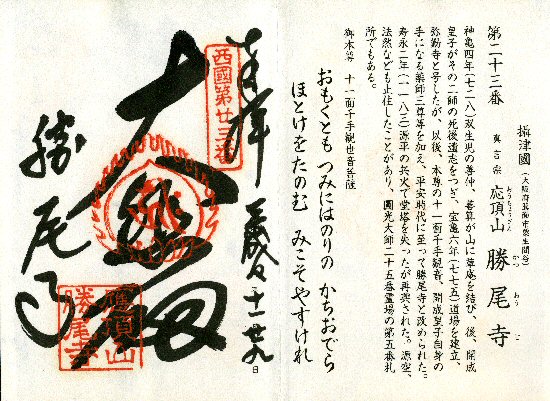 第二十三番
摂津國（大阪府箕面市粟生間谷）
真言宗 応頂山 勝尾寺
おうちょうざん かつ お じ
神亀四年（七二八）双生児の善仲、善算が山に草庵を結び、後、開成
皇子がその二師の死後遺志をつぎ、宝亀六年（七七五）道場を建立、
弥勒寺と号したが、以後、本尊の十一面千手観音、開成皇子自身の
手になる薬師三尊等を加え、平安時代に至って勝尾寺と改められた。
寿永二年（一一八三）源平の兵火で堂塔を失ったが再興された。源空、
法然なども止住したことがあり、圓光大師二十五番霊場の第五番札
所でもある。
御本尊 十一面千手観世音菩薩
おもくとも つみにはのりの かちおでら
ほとけをたのむ みこそやすけれ
奉拝
十一 廿九日
西國第廿三番
大悲殿
勝尾寺
應頂山
勝尾寺